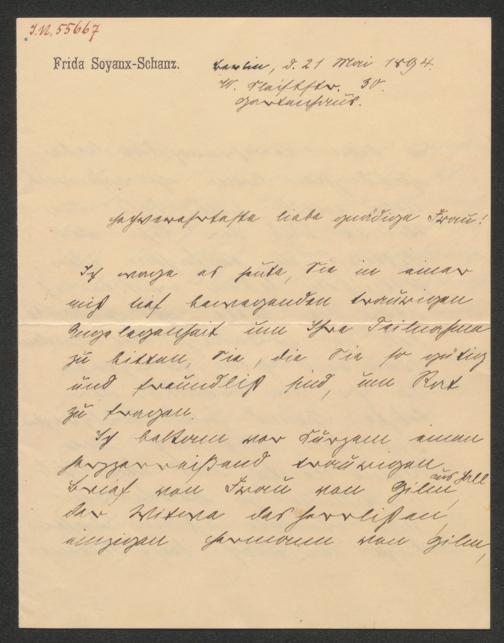 I.N. 55667
Frida Soyaux-Schanz.
Berlin, d. 21 Mai 1894.
W. Kleiststr. 30.
Gartenhaus.
Hochverehrteste liebe gnädige Frau!
Ich wage es heute, Sie in einer
mich tief bewegenden traurigen
Angelegenheit um Ihre Teilnahme
zu bitten, Sie, die Sie so gütig
und freundlich sind, um Rat
zu fragen.
Ich bekam vor Kurzem einen
herzzerreißend traurigen
Brief von Frau von Gilm aus Hall
der Witwe des herrlichen,
einzigen Hermann von Gilm,